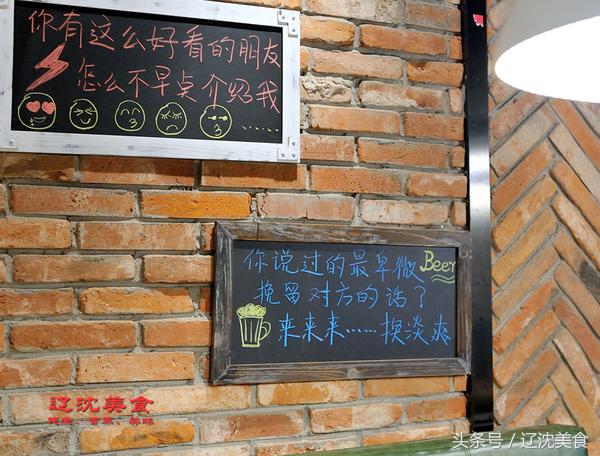 你有这么好看的朋友
怎么不早点介绍我
......
你说过的最卑微
Beer
挽留对方的话？
来来来……换淡爽
辽沈美食
健康、营养、美味
头条号 / 辽沈美食